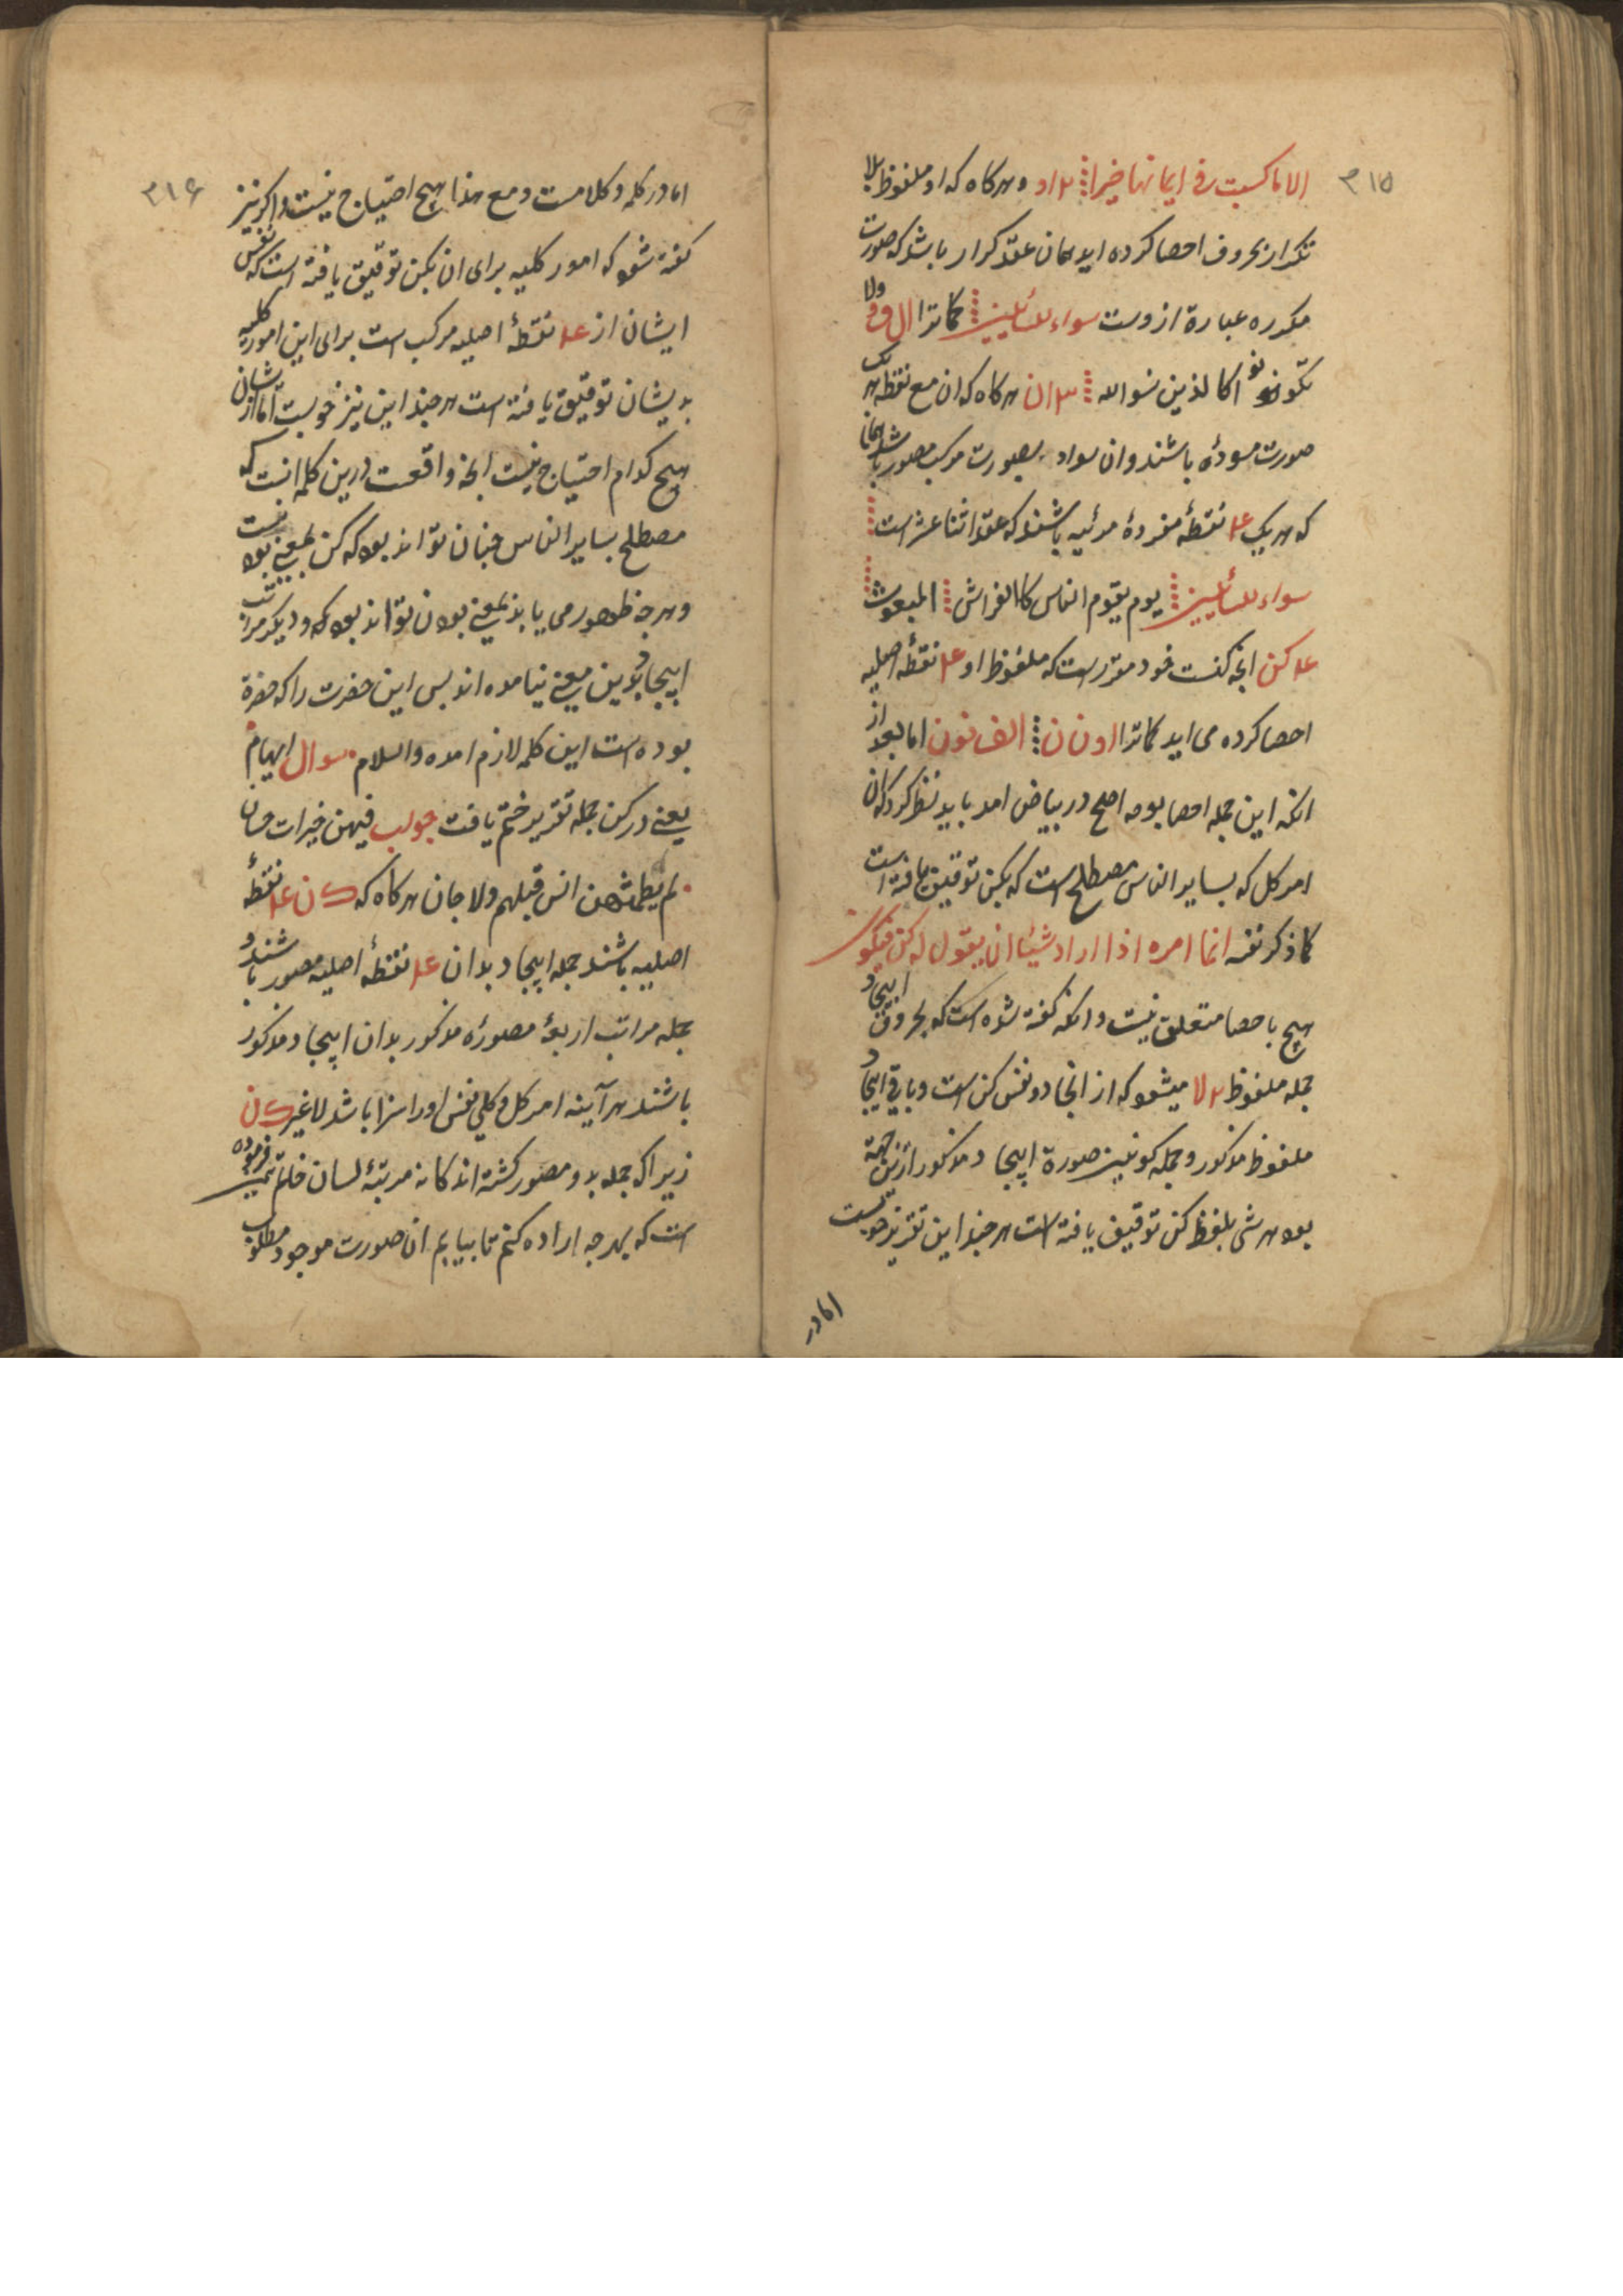 ۳۱۵
الا ما کسبت فی ایمانها خیرا ۲ او و هرکاه که او ملفوظ بلا
تکرار بحروف احصا کرده اید همان عقد کرار باشد که صورت
مکرره عبارة ازوست سواء للسائلین کماترا ال ف و ولا
تکونو اکالذین نسوالله ۳ ان هرکاه که ان مع نقطه هر یک
صورت مسودهٔ باشند وان سواد بصورت مرکب مصور باشد همان
که هر یک ۴ نقطهٔ مفردهٔ مرئیه باشند که عقد اثنا عشر است
سواء للسائلین یوم یقوم الناس کالفراش المبعوث
۴ کن انجه کنست خود مقررست که ملفوظ او ۴ نقطهٔ اصلیه
احصا کرده می اید کماترا ا و ن ن الف نون اما بعد از
انکه این جمله احصا بوجه اصلح در بیاض امد باید نظر کرد که ان
امر کل که بسایر الناس مصطلح است که بکن توقیق یافته است
کما ذکر نفسه انما امره اذا اراد شیئا ان یقول له کن فیکون
هیچ باحصا متعلق نیست وانکه کفته شده است که بحروف ابیجاد
جمله ملفوظ ۲ لا میشود که از انجا دو نفس کن است و باقی ابیجاد
ملفوظ مذکور و جمله کونین صورة ابیجاد مذکور ازین جهة
بود هر شی بلفظ کن توقیف یافته است هر جند این تقریر خوبست
اما در
۳۱۶
اما در کلمه و کلامست و مع هذا هیچ احتیاج نیست و اکر نیز
کفته شود که امور کلیه برای ان بکن توقیق یافته است که نفس
ایشان از ۴ نقطهٔ اصلیه مرکب است برای این امور کلیه
بدیشان توقیق یافته است هر جند این نیز خوبست اما ازیشان
هیچ کدام احتیاج نیست انجه واقعست درین کلمه انست که
مصطلح بسایر الناس جنان تواند بود که کن بمعنی بود نیست
و هرجه ظهور می یابد بمعنی بودن تواند بود که و دیکر مراتب
ابیجاد بدین معنی نیامده اند بس این حضرت را که حضرة
بوده است این کلمه لازم امده والسلام سوال ابهام
یعنی در کن جمله تقریر ختم یافت جواب فیهن خیرات حسان
لم یطمثهن انس قبلهم ولا جان هرکاه که ک ن ۴ نقطهٔ
اصلیه باشند جمله ابیجاد بدان ۴ نقطهٔ اصلیه مصور باشند و
جمله مراتب اربعهٔ مصورهٔ مذکور بدان ابیجاد مذکور
باشند هر آینه امر کل و کلی نفس او را سزا باشد لا غیر ک ن
زیرا که جمله بدو مصور کشته اند کانه مرتبهٔ لسان فرموده
است که بهرجه اراده کنم تا بیابم ان صورت موجود مطلوب